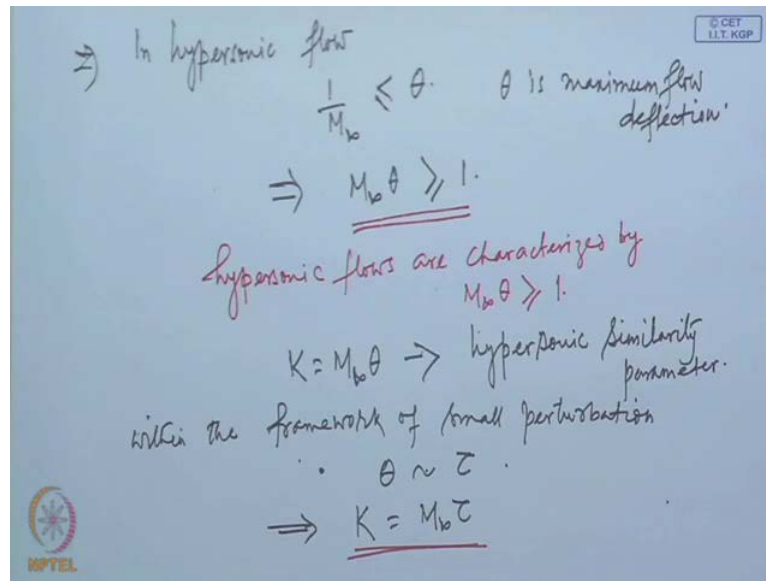 © CET
I.I.T. KGP
⇒ In hypersonic flow
1/M∞ ≤ θ. θ is maximum flow
deflection.
⇒ M∞ θ ⩾ 1.
hypersonic flows are characterized by
M∞ θ ⩾ 1.
K = M∞ θ → hypersonic similarity
parameter.
within the framework of small perturbation
θ ~ τ.
⇒ K = M∞ τ
NPTEL